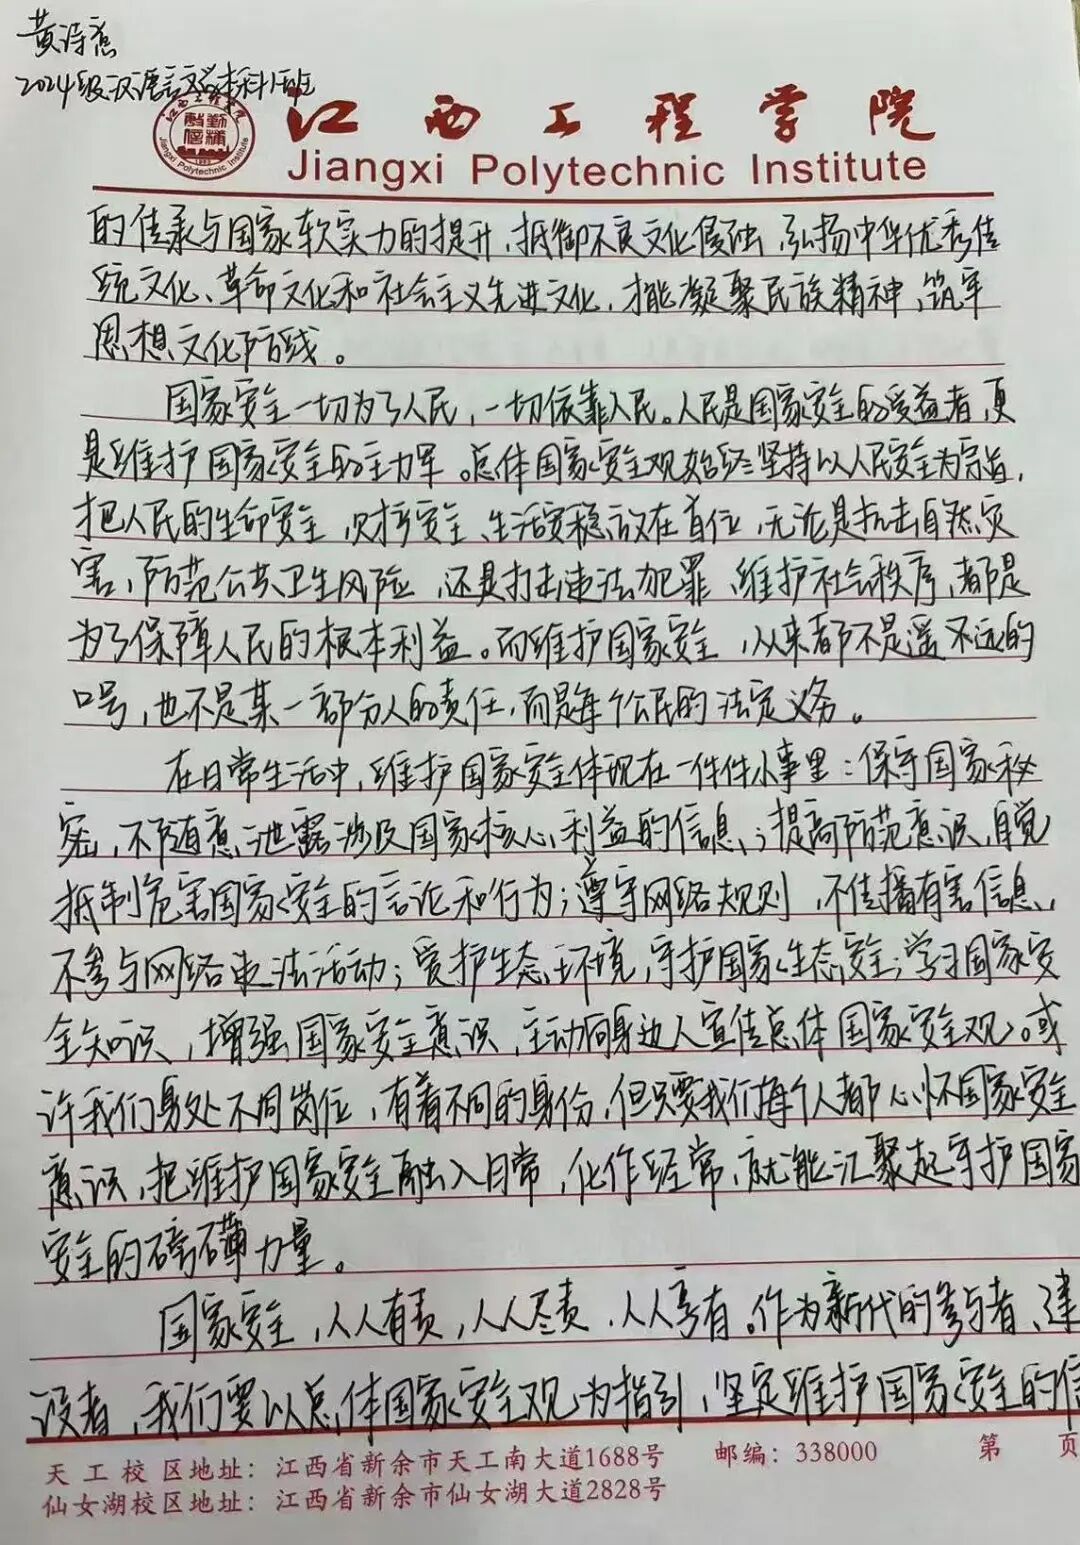 黄诗意
2024级汉语言文学本科1班
江西工程学院
Jiangxi Polytechnic Institute
的传承与国家软实力的提升,抵御不良文化侵蚀,弘扬中华优秀传
统文化、革命文化和社会主义先进文化,才能凝聚民族精神,筑牢
思想文化防线。
国家安全一切为了人民,一切依靠人民。人民是国家安全的受益者,更
是维护国家安全的主力军。总体国家安全观始终坚持以人民安全为宗旨,
把人民的生命安全、财产安全、生活安稳放在首位,无论是抗击自然灾
害,防范公共卫生风险,还是打击违法犯罪,维护社会秩序,都是
为了保障人民的根本利益。而维护国家安全,从来都不是遥不远的
口号,也不是某一部分人的责任,而是每个公民的法定义务。
在日常生活中,维护国家安全体现在一件件小事里:保守国家秘
密,不随意泄露涉及国家核心利益的信息;提高防范意识,自觉
抵制危害国家安全的言论和行为;遵守网络规则,不传播有害信息,
不参与网络违法活动;爱护生态环境,守护国家生态安全;学习国家安
全知识,增强国家安全意识,主动向身边人宣传总体国家安全观。或
许我们身处不同岗位,有着不同的身份,但只要我们每个人都心怀国家安全
意识,把维护国家安全融入日常,化作经常,就能汇聚起守护国家
安全的磅礴力量。
国家安全,人人有责,人人尽责,人人享有。作为新代的参与者、建
设者,我们要以总体国家安全观为指引,坚定维护国家安全的信
天工校区地址:江西省新余市天工南大道1688号 邮编:338000 第 页
仙女湖校区地址:江西省新余市仙女湖大道2828号